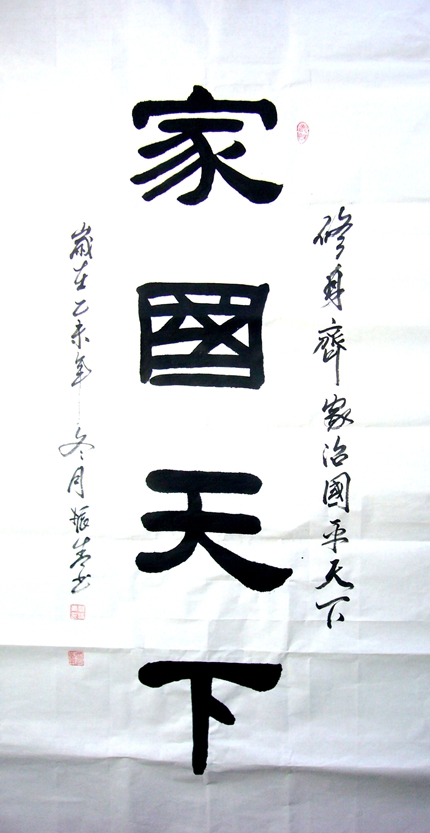 修身齊家治國平天下
家國天下
歲在乙未年冬月振生書